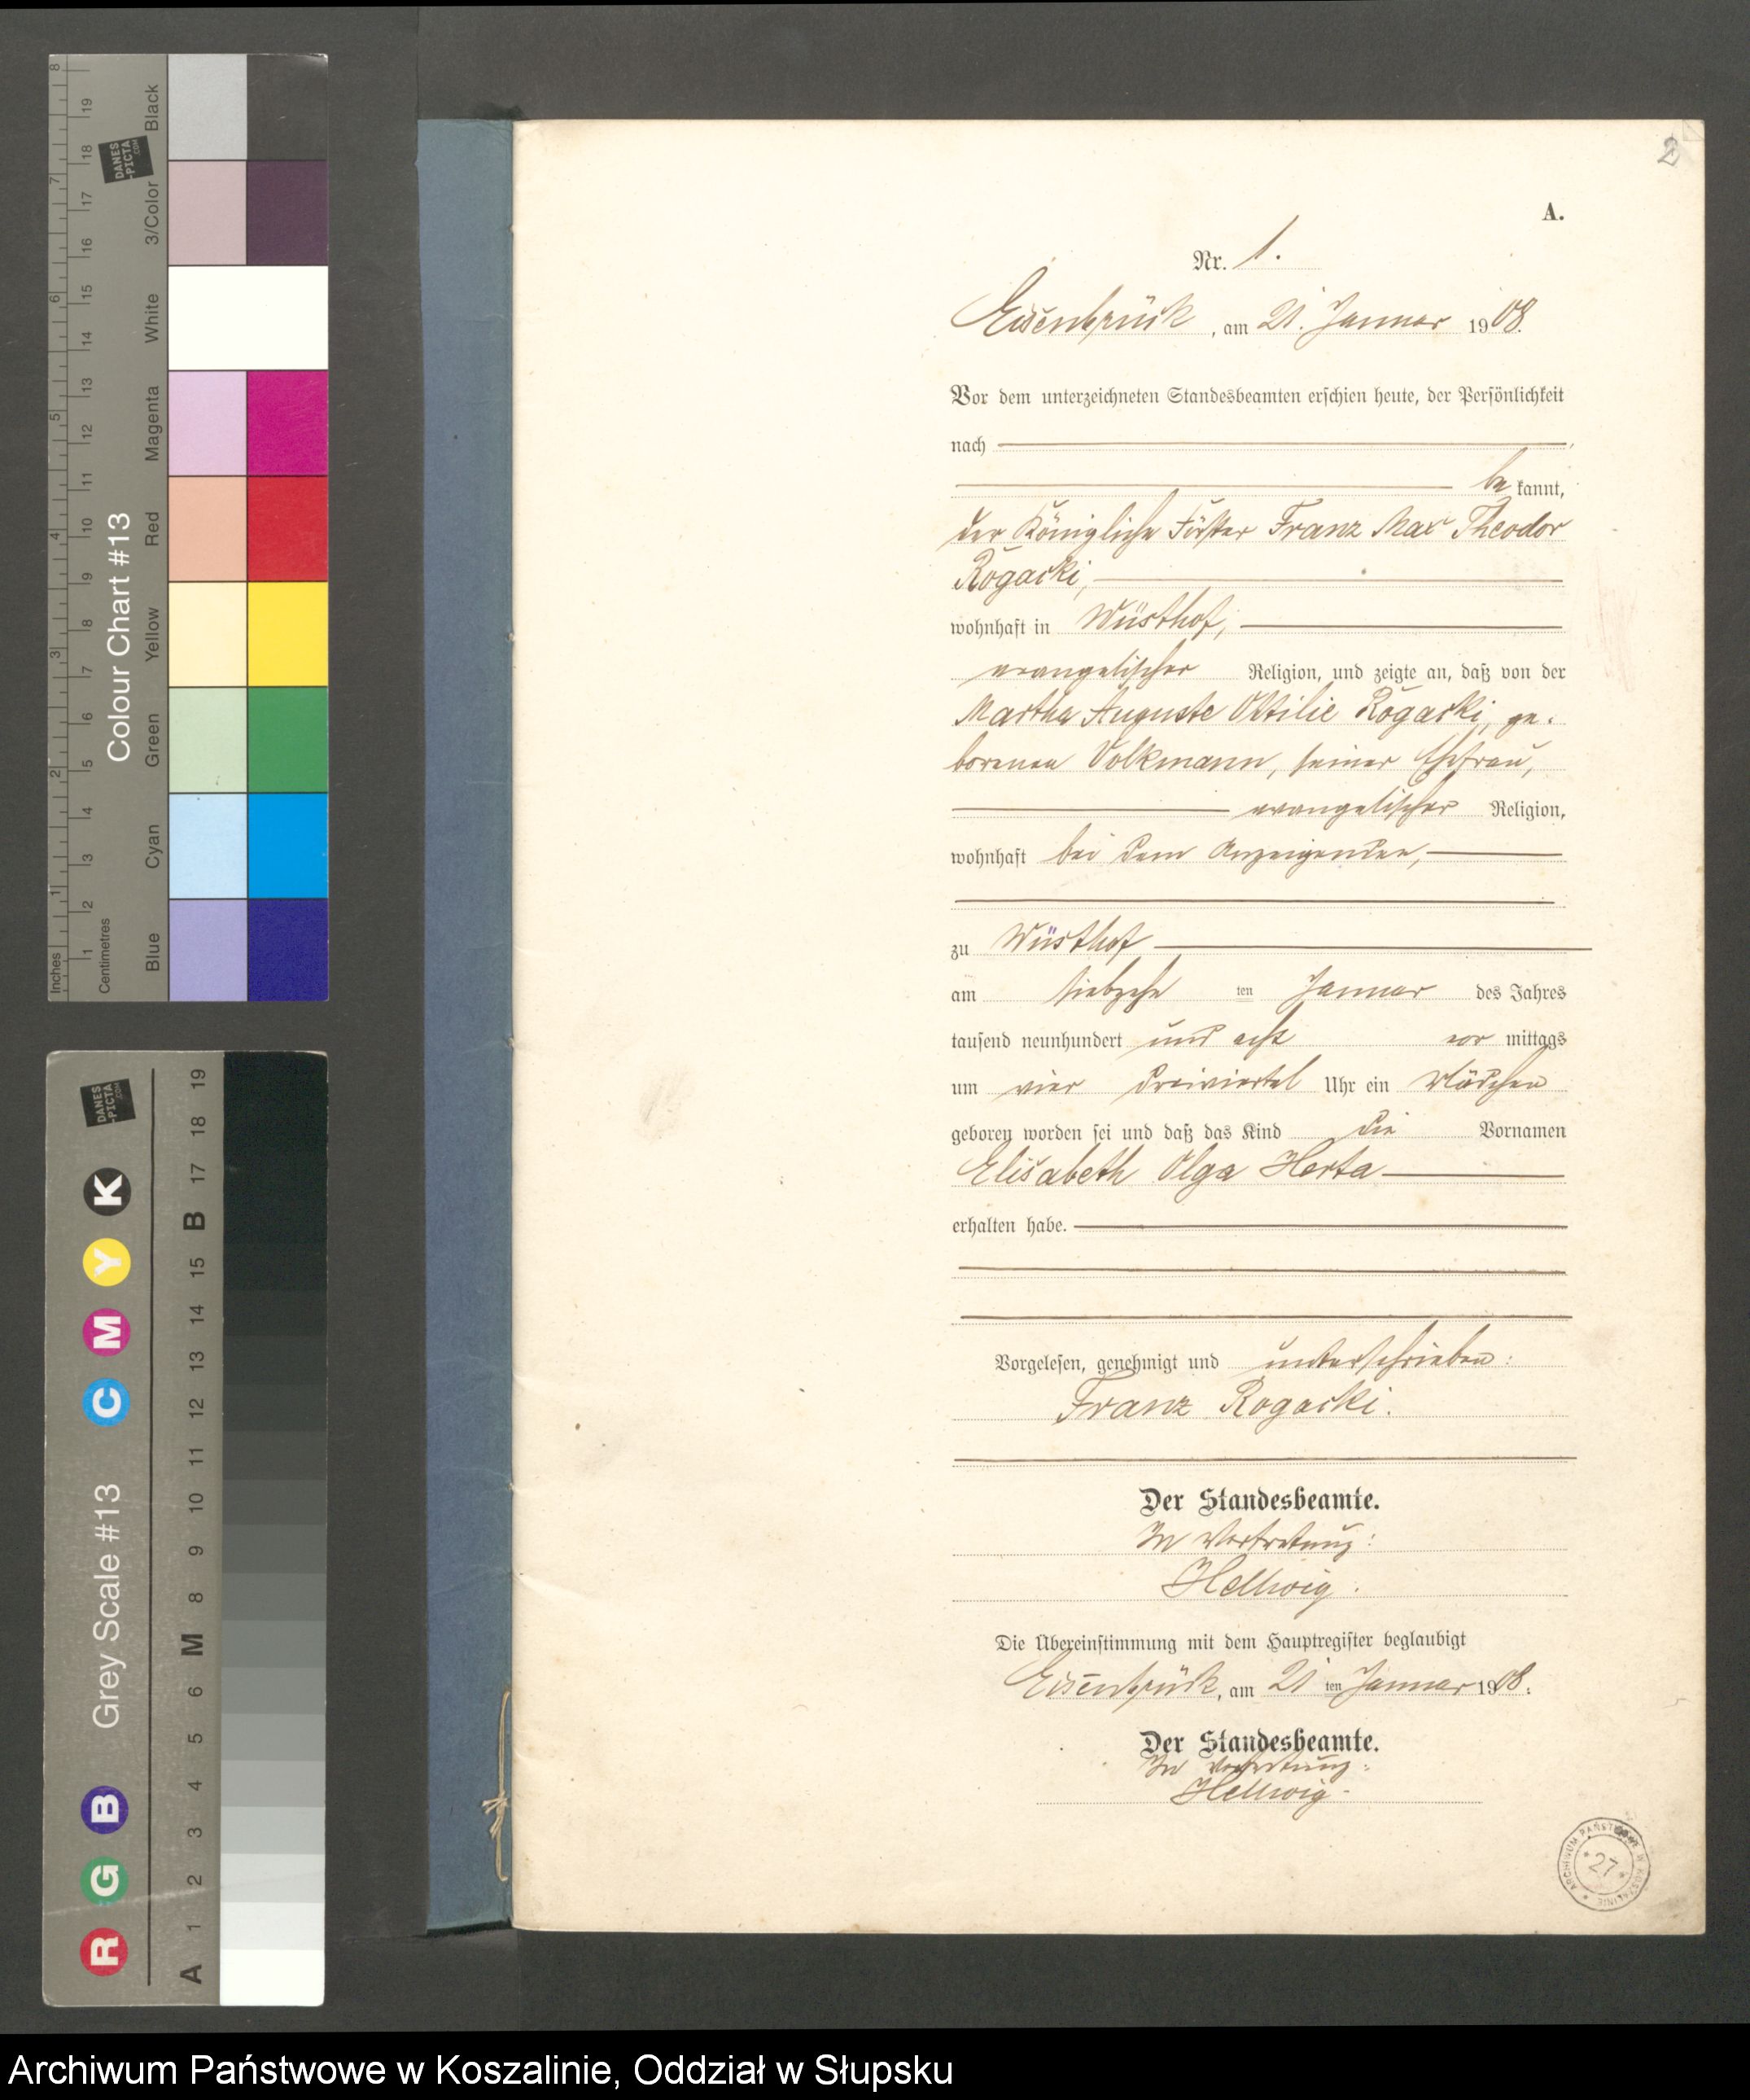 2
A.
Nr. 1.
Eisenbrück, am 21. Januar 1908.
Vor dem unterzeichneten Standesbeamten erschien heute, der Persönlichkeit
nach
be kannt,
der Königliche Förster Franz Max Theodor
Rogacki,
wohnhaft in Wüsthof,
evangelischer Religion, und zeigte an, daß von der
Martha Auguste Ottilie Rogacki, ge-
borenen Volkmann, seiner Ehefrau,
evangelischer Religion,
wohnhaft bei dem Anzeigenden,
zu Wüsthof
am siebzehn ten Januar des Jahres
tausend neunhundert und acht vor mittags
um vier dreiviertel Uhr ein Mädchen
geboren worden sei und daß das Kind die Vornamen
Elisabeth Olga Herta
erhalten habe.
Vorgelesen, genehmigt und unterschrieben:
Franz Rogacki.
Der Standesbeamte.
In Vertretung:
Hellwig.
Die Übereinstimmung mit dem Hauptregister beglaubigt
Eisenbrück, am 21 ten Januar 1908.
Der Standesbeamte.
In Vertretung:
Hellwig.
ARCHIWUM PAŃSTWOWE W KOSZALINIE
27
Colour Chart #13
Inches
1 2 3 4 5 6 7 8
Centimetres
1 2 3 4 5 6 7 8 9 10 11 12 13 14 15 16 17 18 19
Blue Cyan Green Yellow Red Magenta White 3/Color Black
DANES
-PICTA
.COM
Grey Scale #13
R G B C M Y K
A 1 2 3 4 5 6 M 8 9 10 11 12 13 14 15 B 17 18 19
DANES
-PICTA
.COM
Archiwum Państwowe w Koszalinie, Oddział w Słupsku